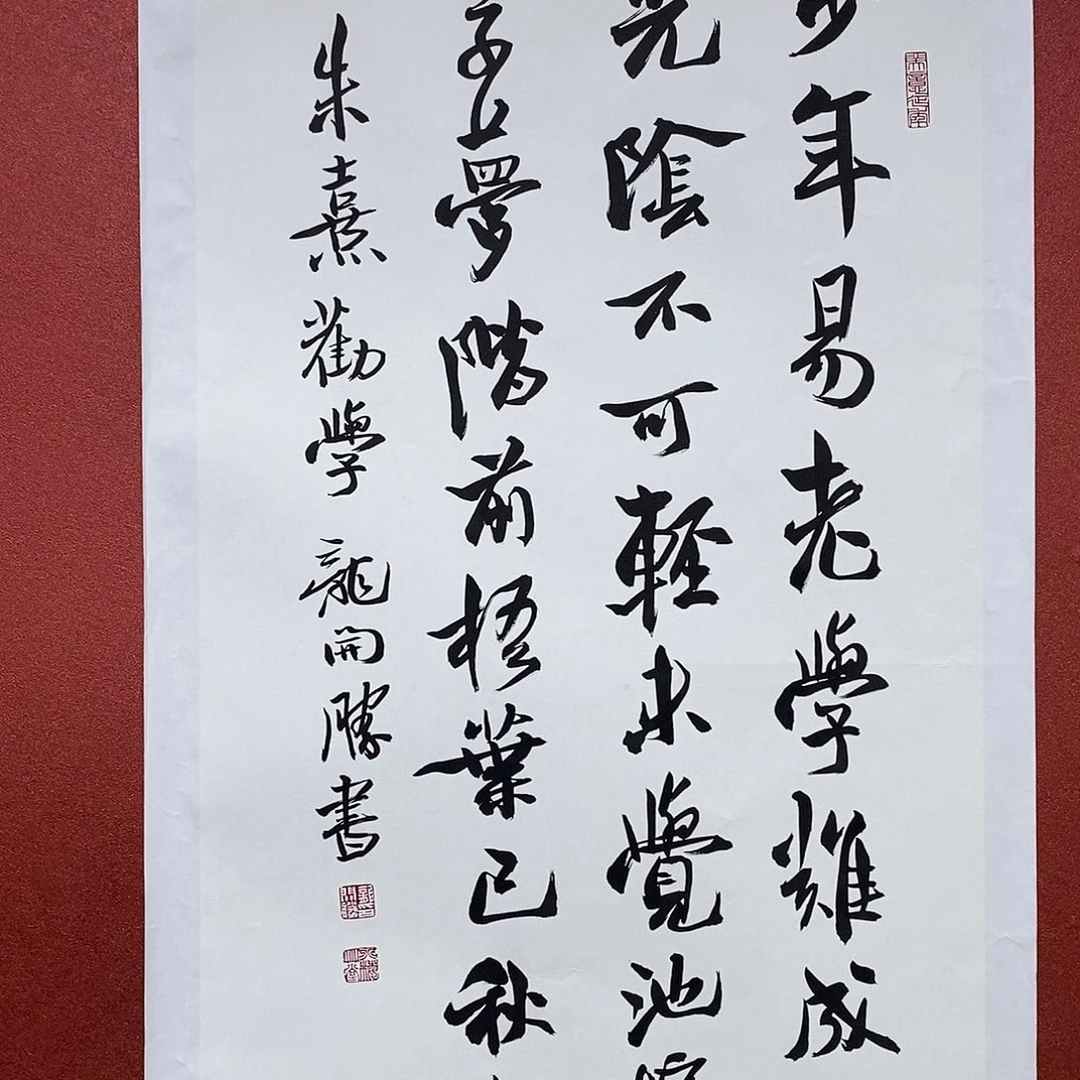 少年易老學難成
光陰不可輕未覺池塘
春草夢階前梧葉已秋
朱熹勸學 龍開勝書